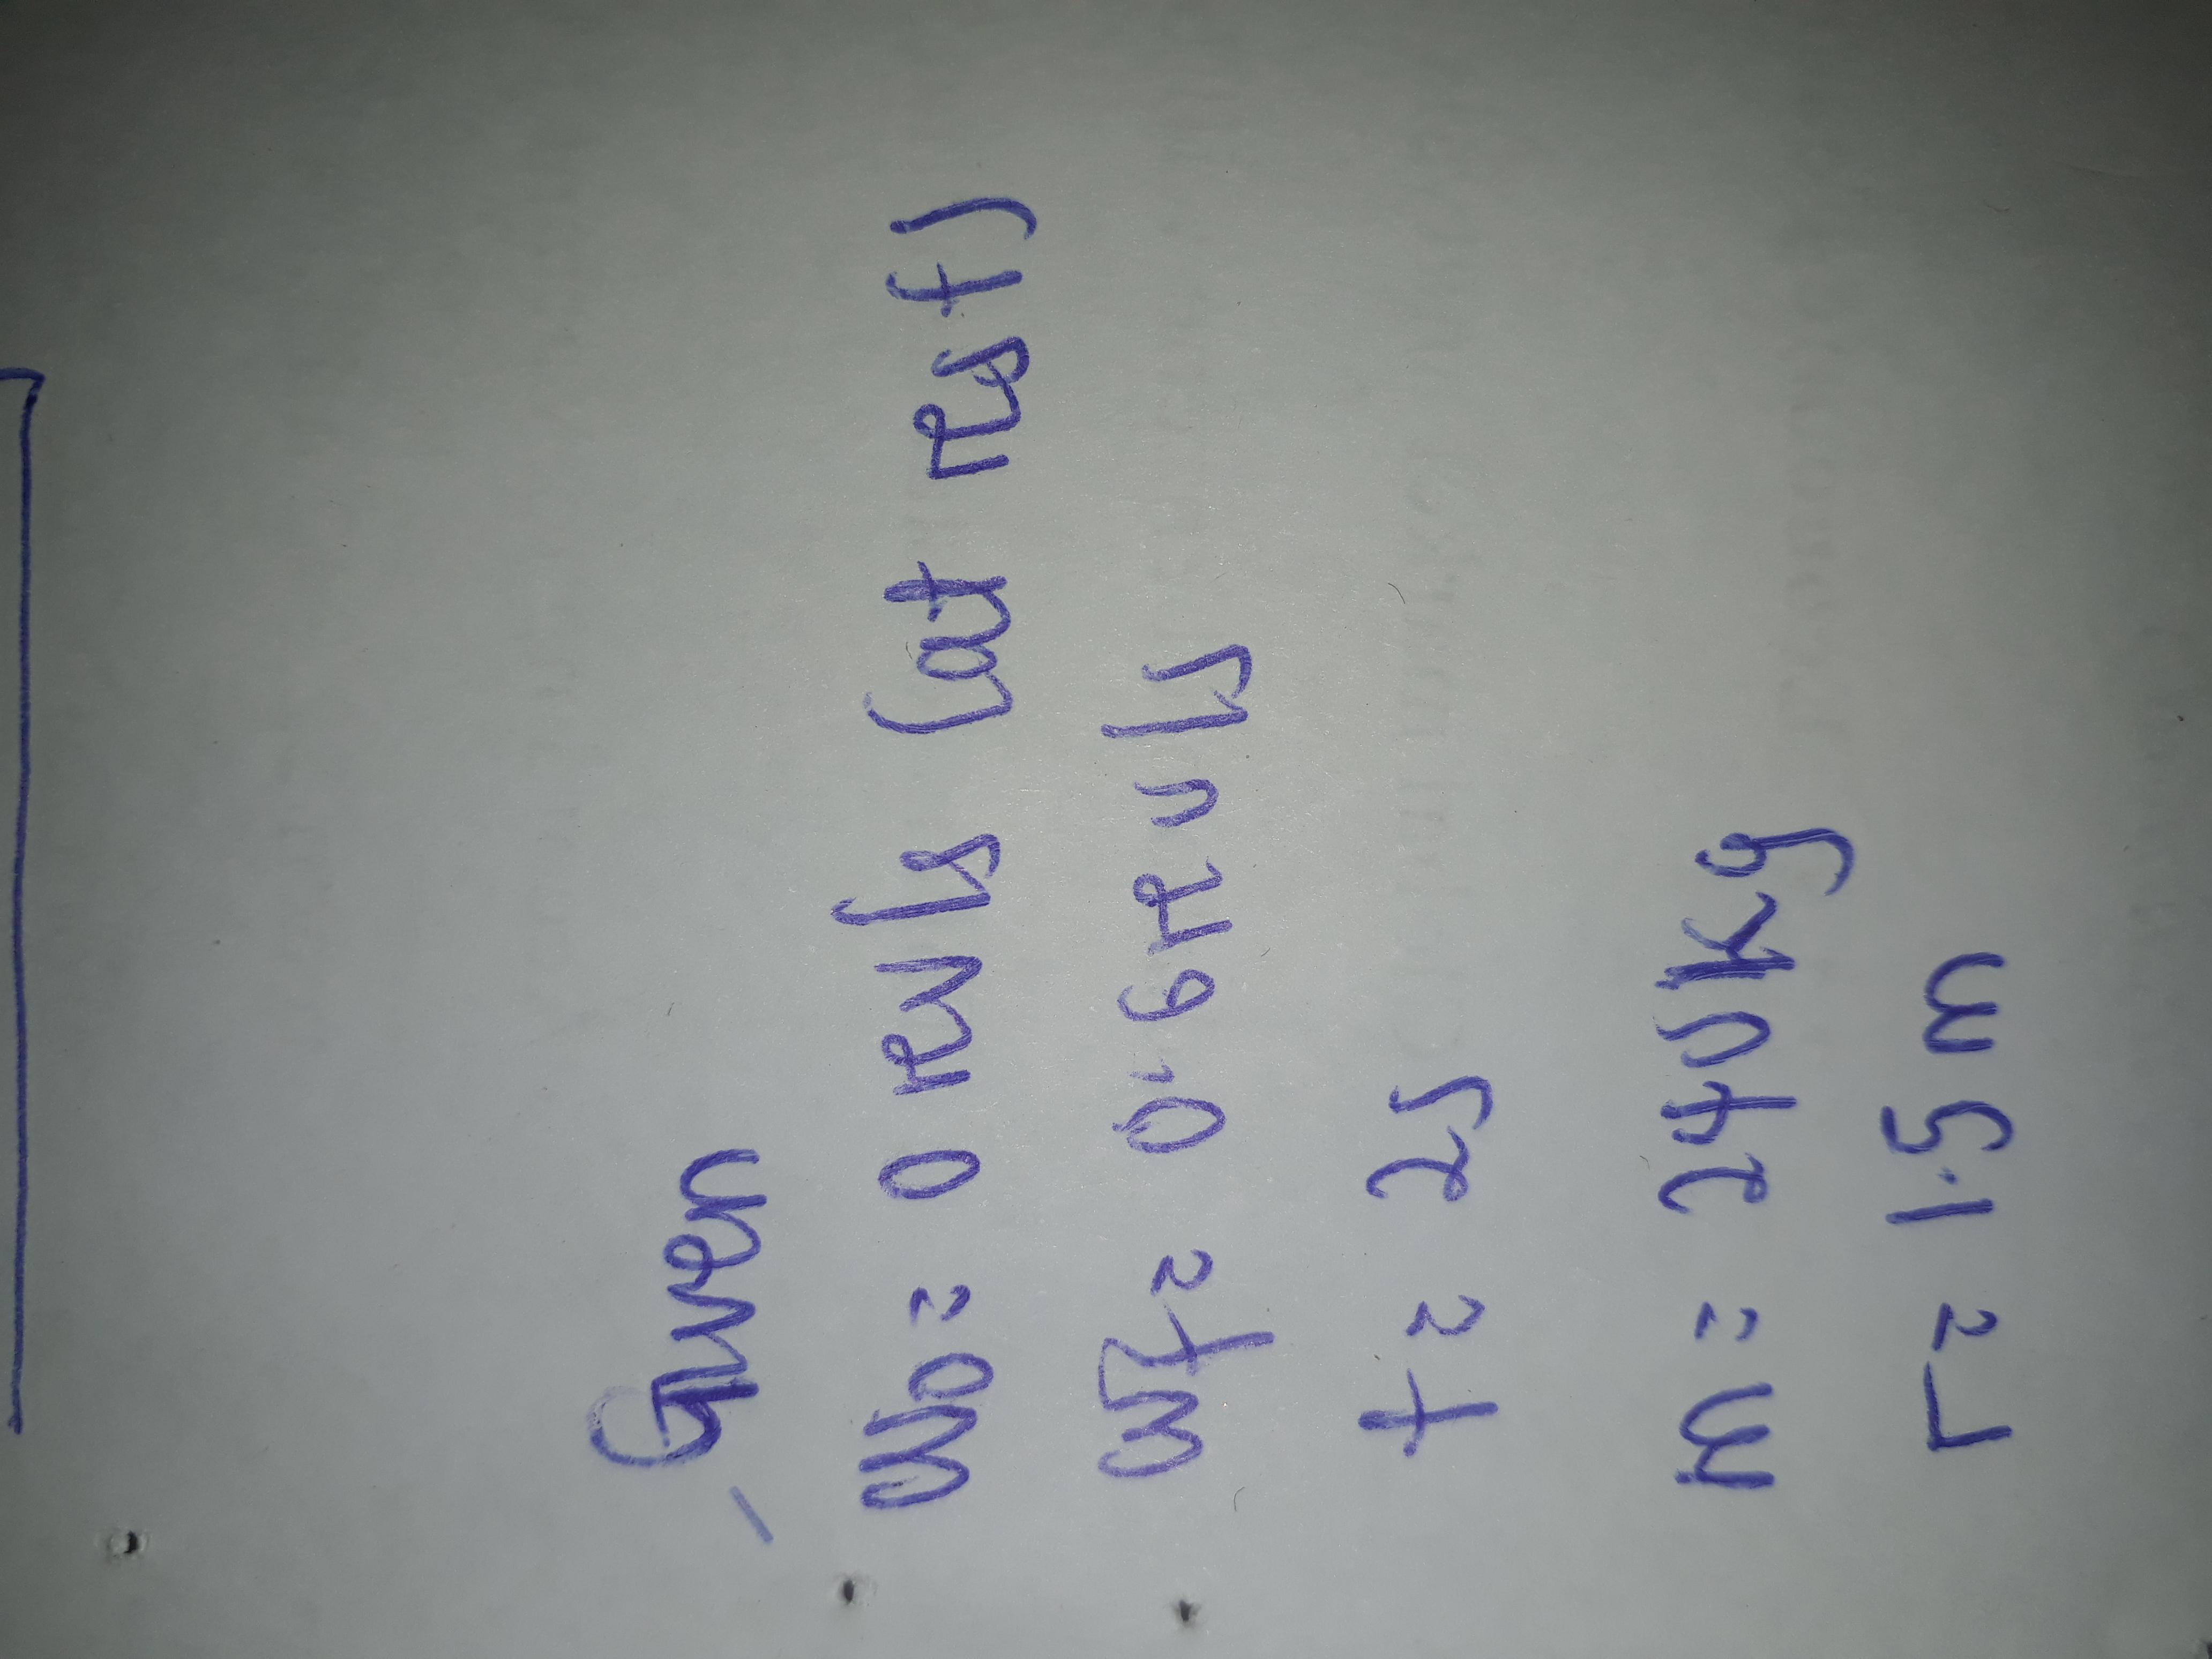 Given
ω₀ = 0 rev/s (at rest)
ωf = 0.6 rev/s
t = 2s
m = 240kg
r = 1.5 m